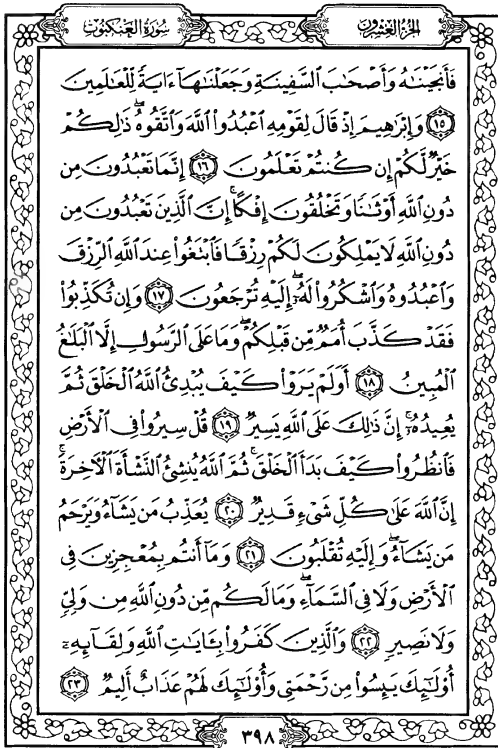 سُورَةُ العَنكَبُوت
الجُزءُ العِشرُون
فَأَنجَيْنَٰهُ وَأَصْحَٰبَ ٱلسَّفِينَةِ وَجَعَلْنَٰهَآ ءَايَةً لِّلْعَٰلَمِينَ
١٥ وَإِبْرَٰهِيمَ إِذْ قَالَ لِقَوْمِهِ ٱعْبُدُوا۟ ٱللَّهَ وَٱتَّقُوهُ ۖ ذَٰلِكُمْ
خَيْرٌ لَّكُمْ إِن كُنتُمْ تَعْلَمُونَ ١٦ إِنَّمَا تَعْبُدُونَ مِن
دُونِ ٱللَّهِ أَوْثَٰنًا وَتَخْلُقُونَ إِفْكًا ۚ إِنَّ ٱلَّذِينَ تَعْبُدُونَ مِن
دُونِ ٱللَّهِ لَا يَمْلِكُونَ لَكُمْ رِزْقًا فَٱبْتَغُوا۟ عِندَ ٱللَّهِ ٱلرِّزْقَ
وَٱعْبُدُوهُ وَٱشْكُرُوا۟ لَهُۥٓ ۖ إِلَيْهِ تُرْجَعُونَ ١٧ وَإِن تُكَذِّبُوا۟
فَقَدْ كَذَّبَ أُمَمٌ مِّن قَبْلِكُمْ ۖ وَمَا عَلَى ٱلرَّسُولِ إِلَّا ٱلْبَلَٰغُ
ٱلْمُبِينُ ١٨ أَوَلَمْ يَرَوْا۟ كَيْفَ يُبْدِئُ ٱللَّهُ ٱلْخَلْقَ ثُمَّ
يُعِيدُهُۥٓ ۚ إِنَّ ذَٰلِكَ عَلَى ٱللَّهِ يَسِيرٌ ١٩ قُلْ سِيرُوا۟ فِى ٱلْأَرْضِ
فَٱنظُرُوا۟ كَيْفَ بَدَأَ ٱلْخَلْقَ ۚ ثُمَّ ٱللَّهُ يُنشِئُ ٱلنَّشْأَةَ ٱلْءَاخِرَةَ ۚ
إِنَّ ٱللَّهَ عَلَىٰ كُلِّ شَىْءٍ قَدِيرٌ ٢٠ يُعَذِّبُ مَن يَشَآءُ وَيَرْحَمُ
مَن يَشَآءُ ۖ وَإِلَيْهِ تُقْلَبُونَ ٢١ وَمَآ أَنتُم بِمُعْجِزِينَ فِى
ٱلْأَرْضِ وَلَا فِى ٱلسَّمَآءِ ۖ وَمَا لَكُم مِّن دُونِ ٱللَّهِ مِن وَلِىٍّ
وَلَا نَصِيرٍ ٢٢ وَٱلَّذِينَ كَفَرُوا۟ بِـَٔايَٰتِ ٱللَّهِ وَلِقَآئِهِۦٓ
أُو۟لَٰٓئِكَ يَئِسُوا۟ مِن رَّحْمَتِى وَأُو۟لَٰٓئِكَ لَهُمْ عَذَابٌ أَلِيمٌ ٢٣
٣٩٨